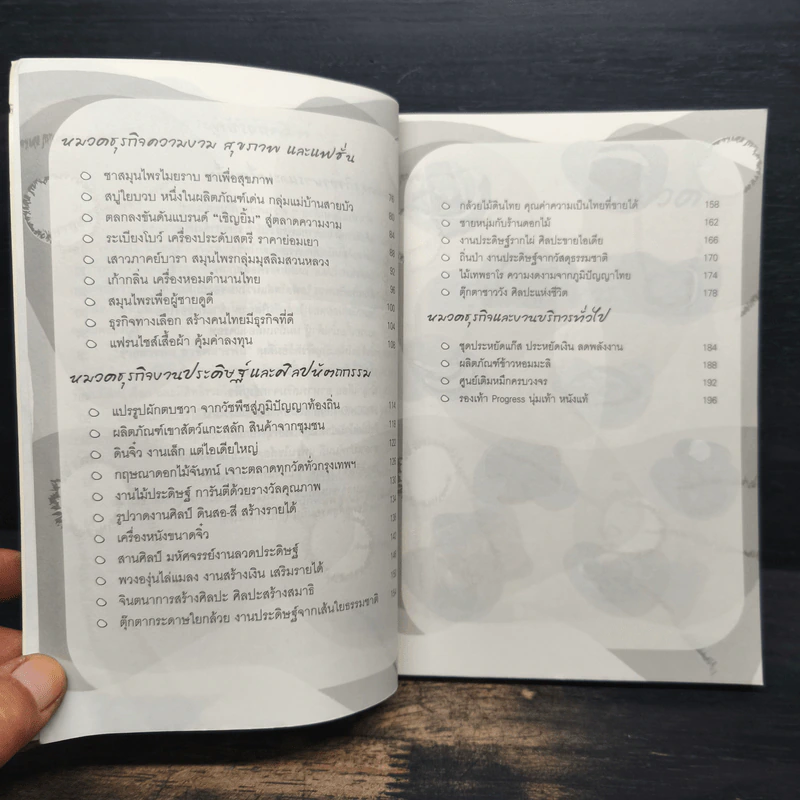 หมวดธุรกิจความงาม สุขภาพ และแฟชั่น
ชาสมุนไพรไมยราบ ชาเพื่อสุขภาพ
สบู่ใยบวบ หนึ่งในผลิตภัณฑ์เด่น กลุ่มแม่บ้านสายบัว
ตลกลงขันดันแบรนด์ “เชิญยิ้ม” สู่ตลาดความงาม
ระเบียงโบว์ เครื่องประดับสตรี ราคาย่อมเยา
เสาวภาคย์บารา สมุนไพรกลุ่มมุสลิมสวนหลวง
เก้ากลิ่น เครื่องหอมตำนานไทย
สมุนไพรเพื่อผู้ชายดูดี 100
ธุรกิจทางเลือก สร้างคนไทยมีธุรกิจที่ดี 104
แฟรนไชส์เสื้อผ้า คุ้มค่าลงทุน 108
หมวดธุรกิจงานประดิษฐ์และศิลปหัตถกรรม
แปรรูปผักตบชวา จากวัชพืชสู่ภูมิปัญญาท้องถิ่น 114
ผลิตภัณฑ์เขาสัตว์แกะสลัก สินค้าจากชุมชน 118
ดินจิ๋ว งานเล็ก แต่ไอเดียใหญ่
กฤษณาดอกไม้จันทน์ เจาะตลาดทุกวัดทั่วกรุงเทพฯ
งานไม้ประดิษฐ์ การันตีด้วยรางวัลคุณภาพ
รูปวาดงานศิลป์ ดินสอ-สี สร้างรายได้
เครื่องหนังขนาดจิ๋ว
สานศิลป์ มหัศจรรย์งานลวดประดิษฐ์
พวงองุ่นไล่แมลง งานสร้างเงิน เสริมรายได้
จินตนาการสร้างศิลปะ ศิลปะสร้างสมาธิ
ตุ๊กตากระดาษใยกล้วย งานประดิษฐ์จากเส้นใยธรรมชาติ
กล้วยไม้ดินไทย คุณค่าความเป็นไทยที่ขายได้ 158
ชายหนุ่มกับร้านดอกไม้ 162
งานประดิษฐ์รากไผ่ ศิลปะขายไอเดีย 166
ถิ่นป่า งานประดิษฐ์จากวัสดุธรรมชาติ 170
ไม้เทพธาโร ความงดงามจากภูมิปัญญาไทย 174
ตุ๊กตาชาววัง ศิลปะแห่งชีวิต 178
หมวดธุรกิจและงานบริการทั่วไป
ชุดประหยัดแก๊ส ประหยัดเงิน ลดพลังงาน 184
ผลิตภัณฑ์ข้าวหอมมะลิ 188
ศูนย์เติมหมึกครบวงจร 192
รองเท้า Progress นุ่มเท้า หนังแท้ 196